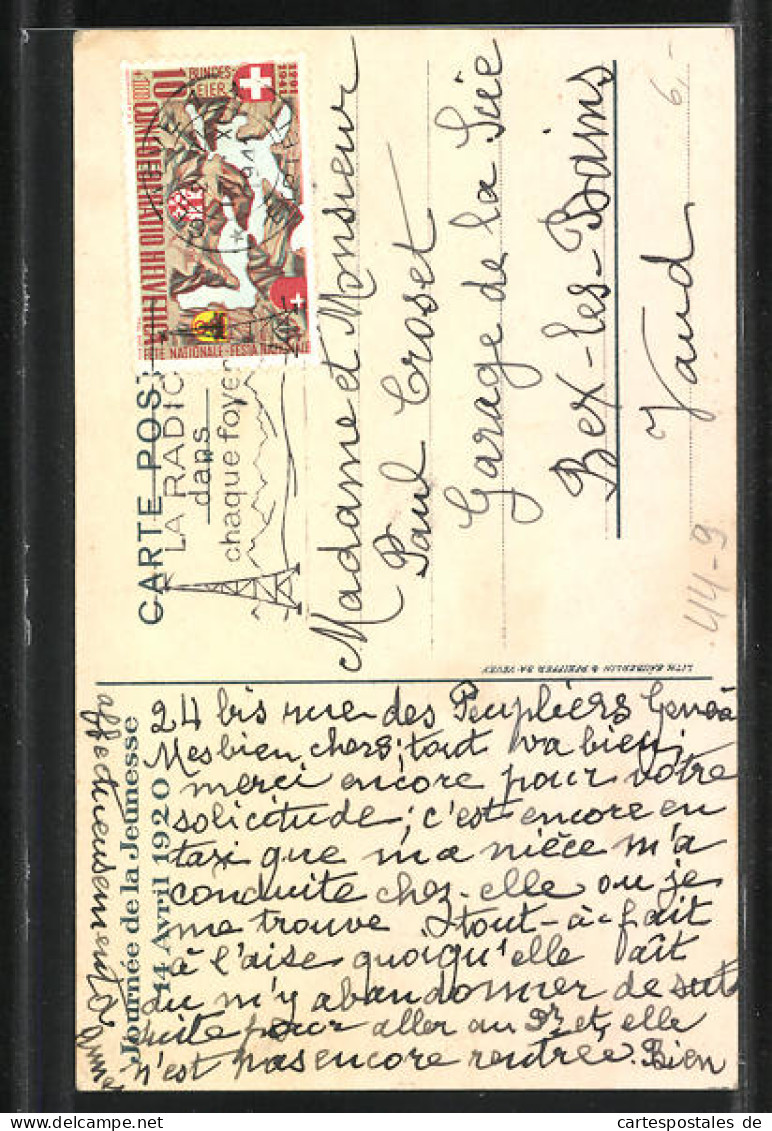 CARTE POST
1291
1941
BUNDES-
FEIER
10
CONFOEDERATIO HELVETICA
FETE NATIONALE-FESTA NAZIONALE
LA RADIO
dans
chaque foyer
Madame et Monsieur
Paul Croset
Garage de la Scie
Bex-les-Bains
Vaud
6,-
414-9
LITH SÄUBERLIN & PFEIFFER SA VEVEY
Journée de la Jeunesse
14 Avril 1920
24 bis rue des Peupliers Genève
Mes bien chers; tout va bien;
merci encore pour votre
solicitude; c'est encore en
taxi que ma nièce m'a
conduite chez-elle ou je
me trouve tout-à-fait
à l'aise quoiqu'elle
du m'y abandonner de
suite pour aller au et elle
n'est pas encore rentrée. Bien
affectueusement à
cartespostales de